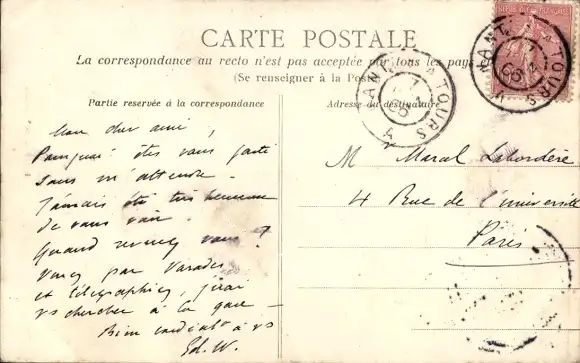 CARTE POSTALE
La correspondance au recto n'est pas acceptée par tous les pays
(Se renseigner à la Poste)
Partie reservée à la correspondance
Mon cher ami,
Pourquoi êtes vous parti
sans m'attendre.
J'aurais été très heureux
de vous voir.
Quand revenez vous ?
Venez par Varades
et télégraphiez, j'irai
vs chercher à la gare —
Bien cordialt à vs
Ed. W.
Adresse du destinataire
Mr Marcel Labordère
4 Rue de l'Université
Paris
NANT A TOURS
NANT A TOURS